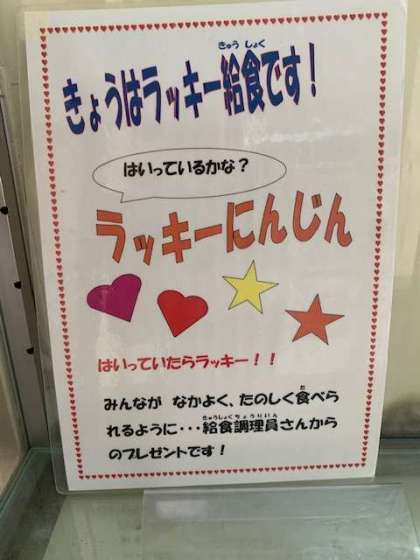 きゅう しょく
きょうはラッキー給食です！
はいっているかな？
ラッキーにんじん
はいっていたらラッキー！！
みんなが なかよく、たのしく食べら
れるように・・・給食調理員さんから
のプレゼントです！